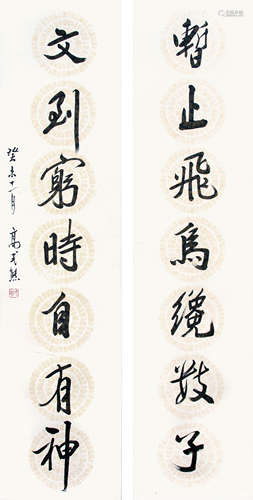 暫止飛烏纔數子
文到窮時自有神
癸未十一月 高式熊